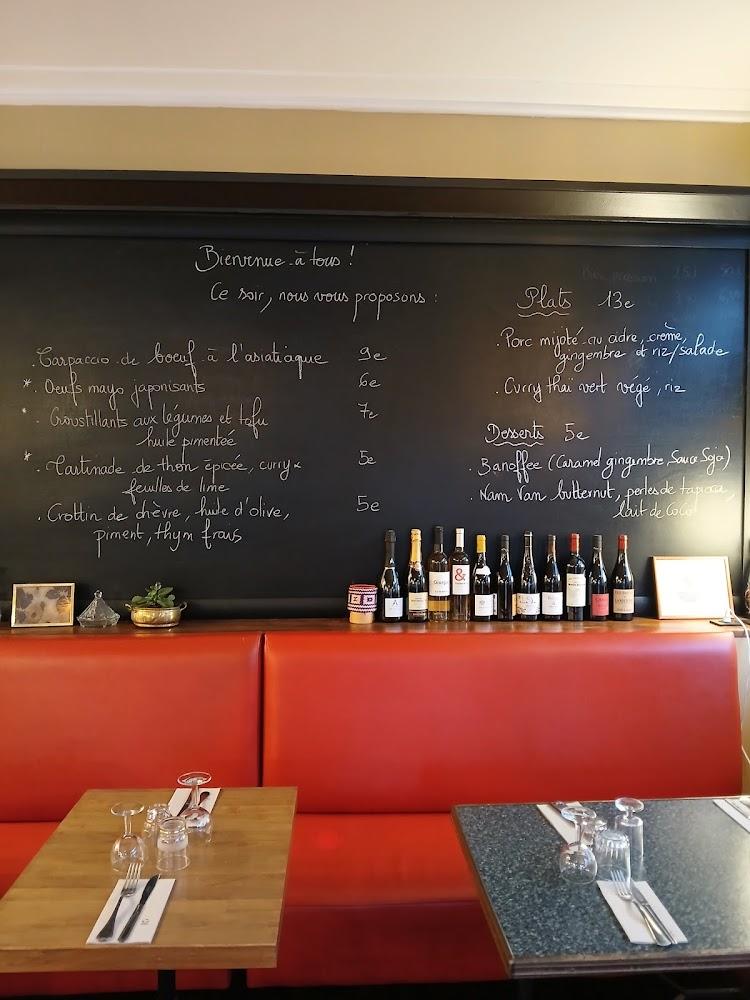 Bienvenue à tous !
Ce soir, nous vous proposons :
. Carpaccio de boeuf à l'asiatique 9e
* . Oeufs mayo japonisants 6e
* . Croustillants aux légumes et tofu 7e
huile pimentée
* . Tartinade de thon épicée, curry & 5e
feuilles de lime
. Crottin de chèvre, huile d'olive, 5e
piment, thym frais
Plats 13e
. Porc mijoté au cidre, crème,
gingembre et riz/salade
. Curry thaï vert végé, riz
Desserts 5e
. Banoffee (Caramel gingembre, Sauce Soja)
. Nam Van butternut, perles de tapioca,
lait de CoCo
&